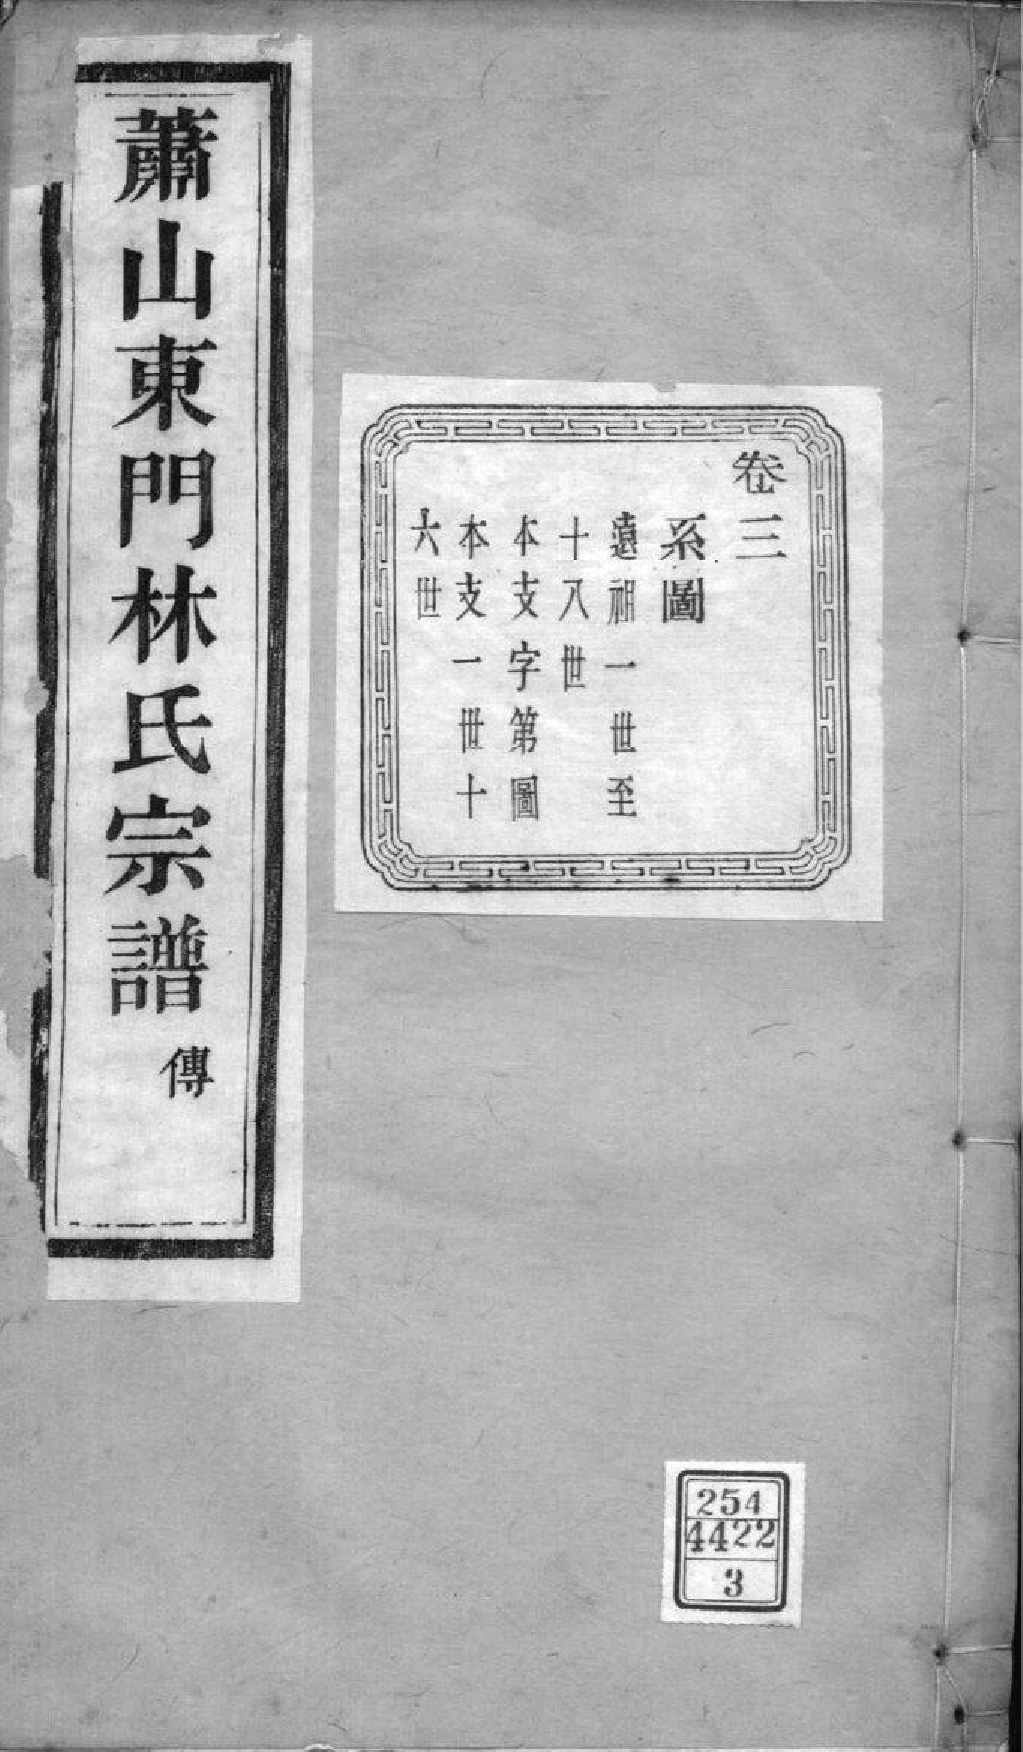 卷三
系圖
遠祖一世至
十八世
本支字第圖
本支一世十
六世
蕭山東門林氏宗譜 傳
254
4422
3